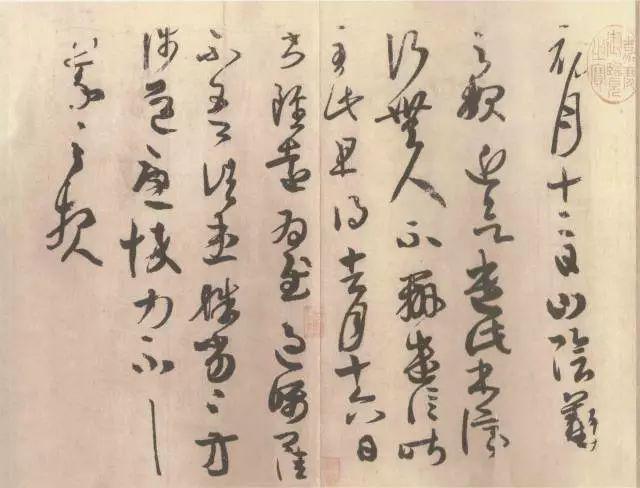 嘉慶御覽之寶
初月十二日山陰羲
之報近欲遣此書停
行無人不辦遣信昨
至此且得去月十六日
書雖遠為慰過囑卿佳
不吾諸患殊劣〻方
涉道憂悴力不具
羲之報